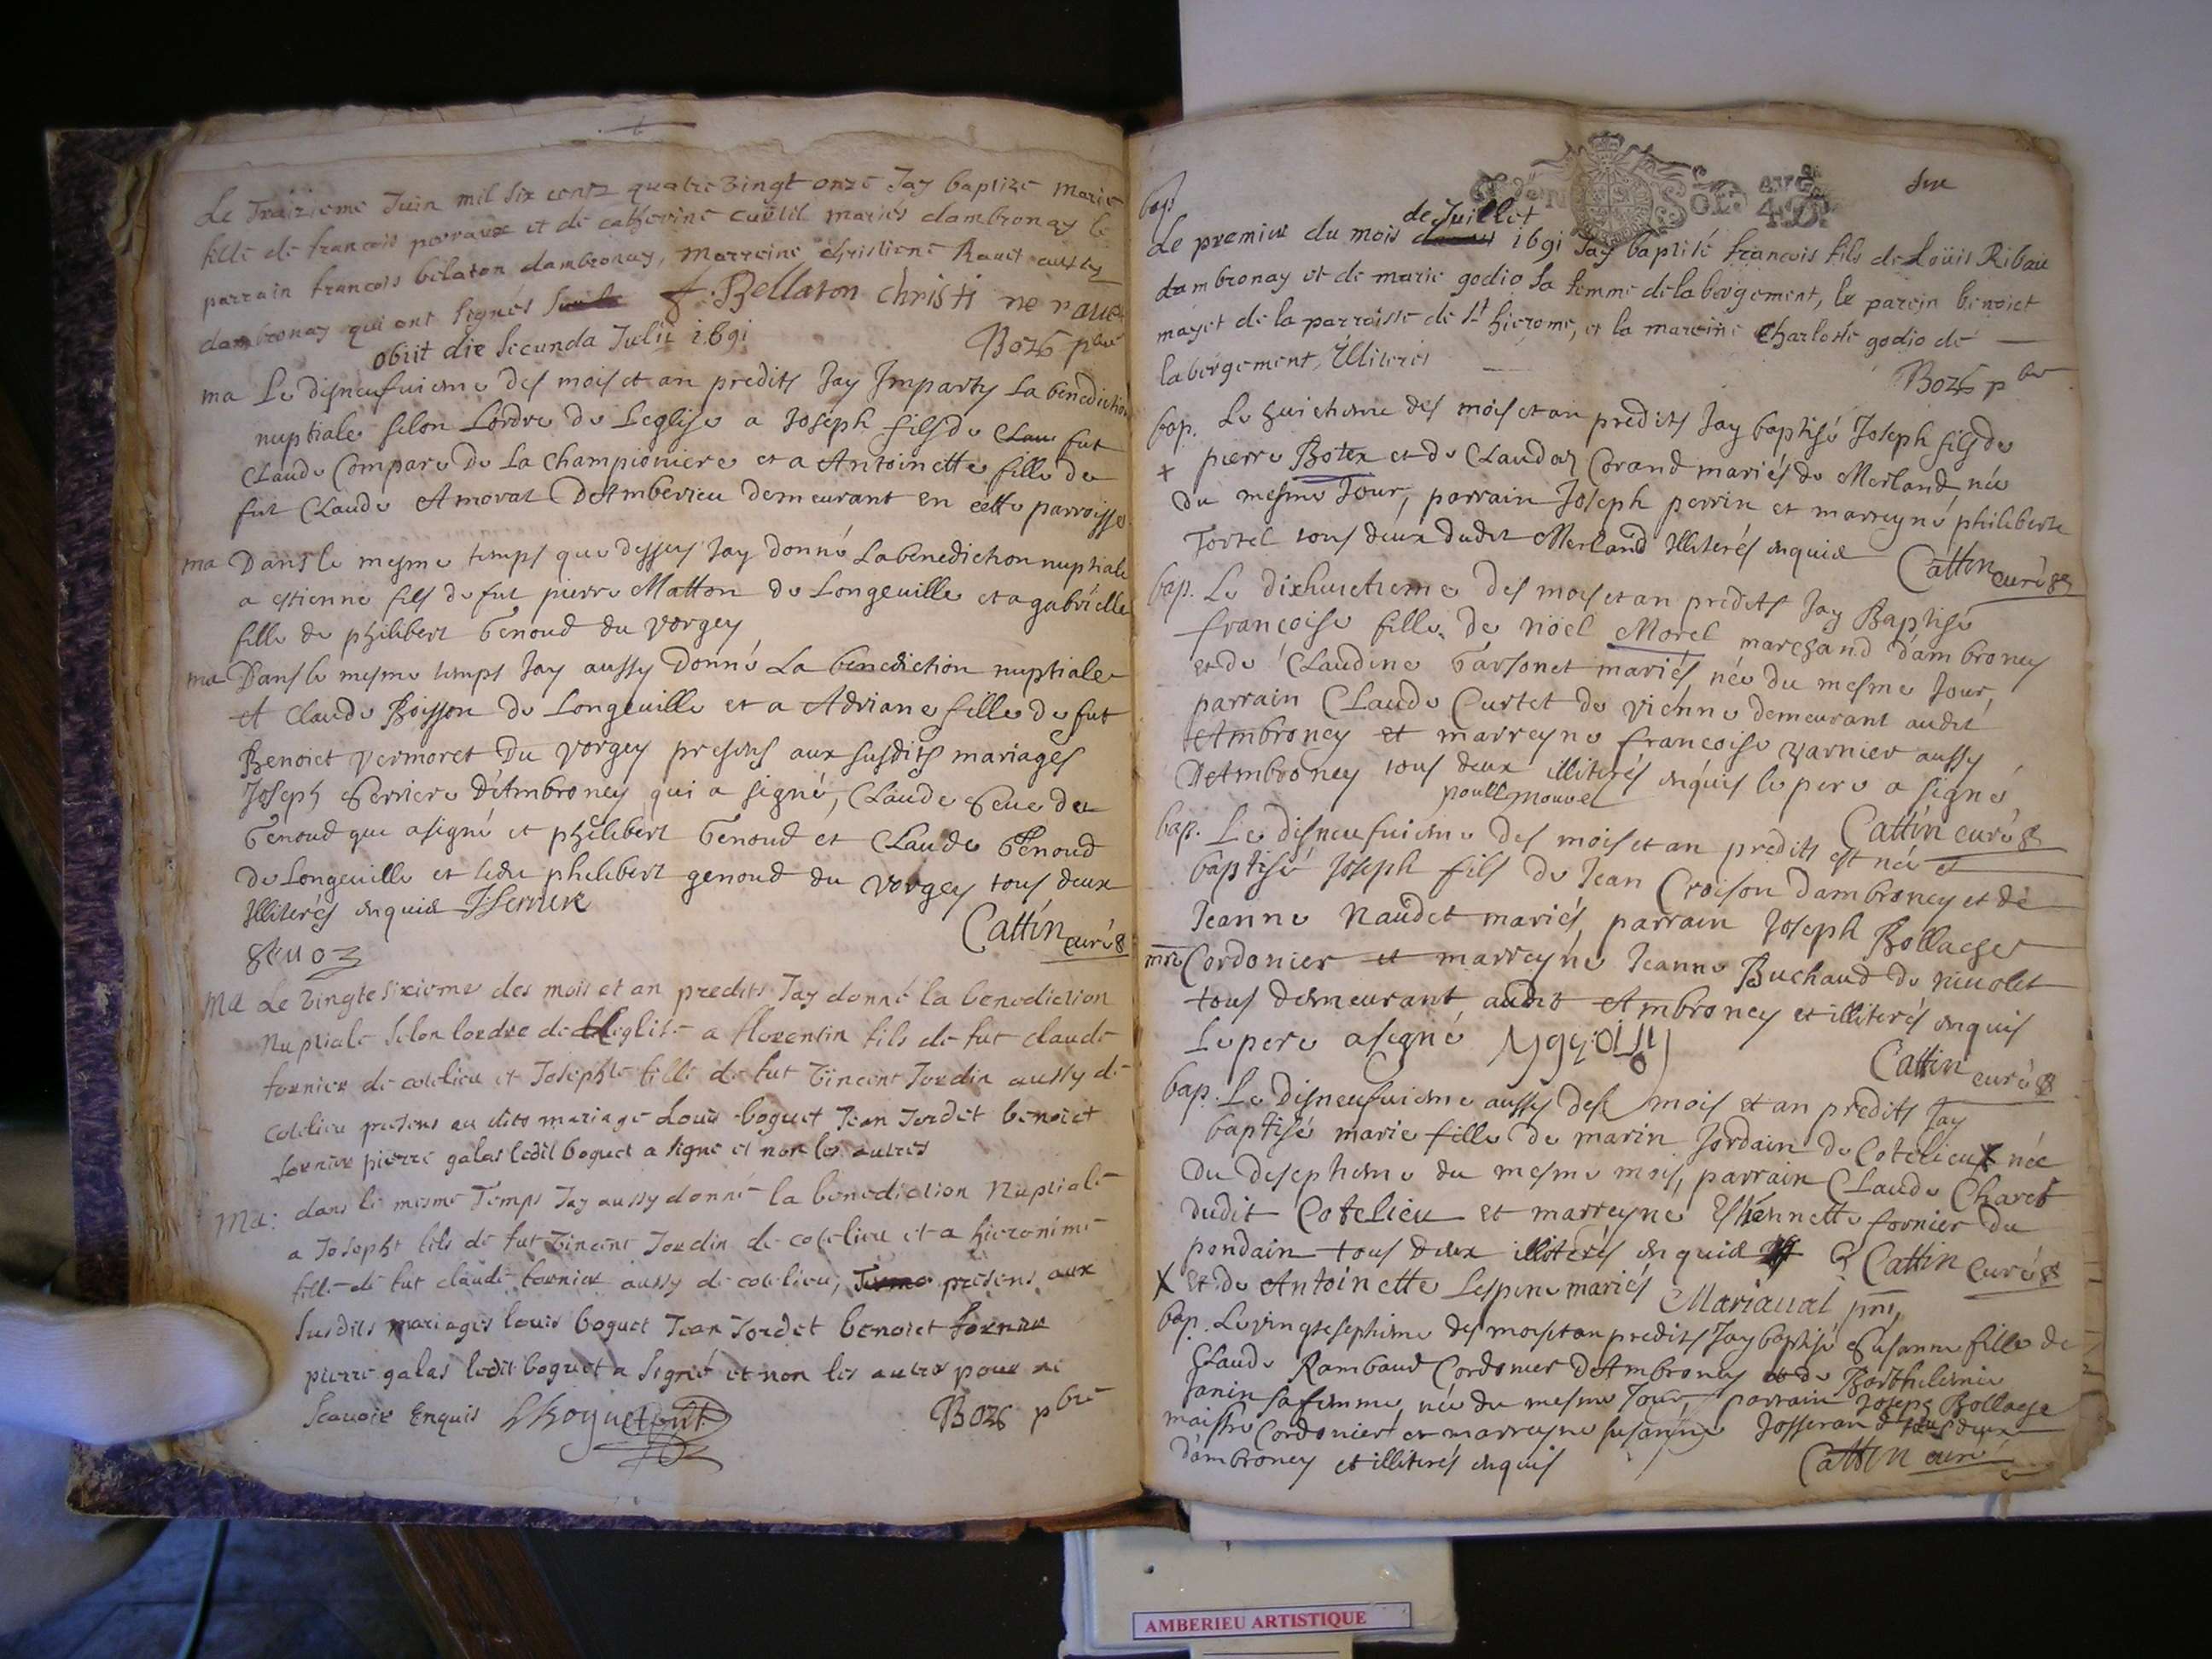 Le Traizieme Juin mil six cents quatre vingt onze Jay baptize Marie
fille de francois perraux et de catherine cuëtil mariés dambronay le
parrain francois belaton dambronay, marreine christiene Rauet aussy
dambronay qui ont signés f. Bellaton christi ne raue
obiit die secunda Julii 1691 Boz6 pbre
ma Le disneufuieme des mois et an predits Jay Imparty La benediction
nuptiale selon Lordre de Leglise a Joseph fils de Clau fut
Claude Compare de La Championiere et a Antoinette fille de
fut Claude Amorat DAmberieu demeurant en cette parroisse
ma Dans le mesme temps que dessus Jay donné La benediction nuptiale
a estienne fils de fut pierre Matton de Longeuille et a gabrielle
fille de philibert Genoud du vorgey
ma Dans le mesme temps Jay aussy donné La benediction nuptiale
A Claude Boisson de Longeuille et a Adriane fille de fut
Benoict vermoret du vorgey presens aux susdits mariages
Joseph Serriere d'Ambroney qui a signé, Claude
Genoud qui a signé et philibert Genoud et Claude Genoud
de Longeuille et philibert genoud du vorgey tous deux
Illiterés enquis
Cattin curé
Ma Le vingtesixieme des mois et an predits Jay donné la benediction
Nuptiale selon lordre de Leglise a florentin fils de fut claude
fornier de cotelieu et Josephte fille de fut vincent Jordin aussy de
cotelieu presens au dits mariage Louis boguet Jean Jordet benoict
fornier pierre galas ledit boguet a signe et non les autres
Ma: dans le mesme Temps Jay aussy donné la benediction Nuptiale
a Joseph fils de fut vincent Jordin de cotelieu et a hieronime
fille de fut claude fornier aussy de cotelieu, presens aux
susdits mariages louis boguet Jean Jordet benoict fornier
pierre galas ledit boguet a signé et non les autres pour ne
scauoir Enquis Lboguet Boz6 pbre
bap
de Juillet
Le premier du mois 1691 Jay baptisé francois fils de Loüis Ribau
dambronay et de marie godio sa femme de labergement, le parein benoict
mayet de la parroisse de st hierome, et la mareine Charlotte godio de
labergement, Illiteres
Boz6 pbre
bap. Le huictieme des mois et an predits Jay baptisé Joseph fils de
+ pierre Botex et de Claudaz Corand mariés de Merland, née
du mesme Jour, parrain Joseph perrin et marreyne philiberte
Tortel tous deux dudit Merland Illiterés enquis Cattin curé
bap. Le dixhuictieme des mois et an predits Jay Baptisé
françoise fille de noël Morel marchand d'ambroney
et de Claudine Garsonet mariés, née du mesme Jour,
parrain Claude Curtet de vienne demeurant audit
Ambroney et marreyne francoise varnier aussy
DAmbroney tous deux illiterés enquis le pere a signé
Cattin curé
bap. Le disneufuieme des mois et an predits est née et
baptisé Joseph fils de Jean Croison dambroney et de
Jeanne Naudet mariés, parrain Joseph Bollache
mre Cordonier et marreyne Jeanne Buchaud de niuolet
tous demeurant audit Ambroney et illiterés enquis
Le pere a signé
Cattin curé
bap. Le disneufuieme aussy des mois et an predits Jay
baptisé marie fille de marin Jordain de Cotelieu X née
du diseptieme du mesme mois, parrain Claude Charet
dudit Cotelieu et marreyne Ethiennette fornier du
pondain tous deux illiterés enquis Cattin Curé
X Et de Antoinette Lespine mariés Mariaual pnt,
bap. Le vingtseptieme des mois et an predits Jay baptisé Susanne fille de
Claude Rambaud Cordonier dAmbroney et de Barthelemie
Janin sa femme, née du mesme Jour, parrain Joseph Bollache
maistre Cordonier et marreyne susanne Josserand tous deux
dambroney et illiterés enquis Cattin curé
AMBERIEU ARTISTIQUE